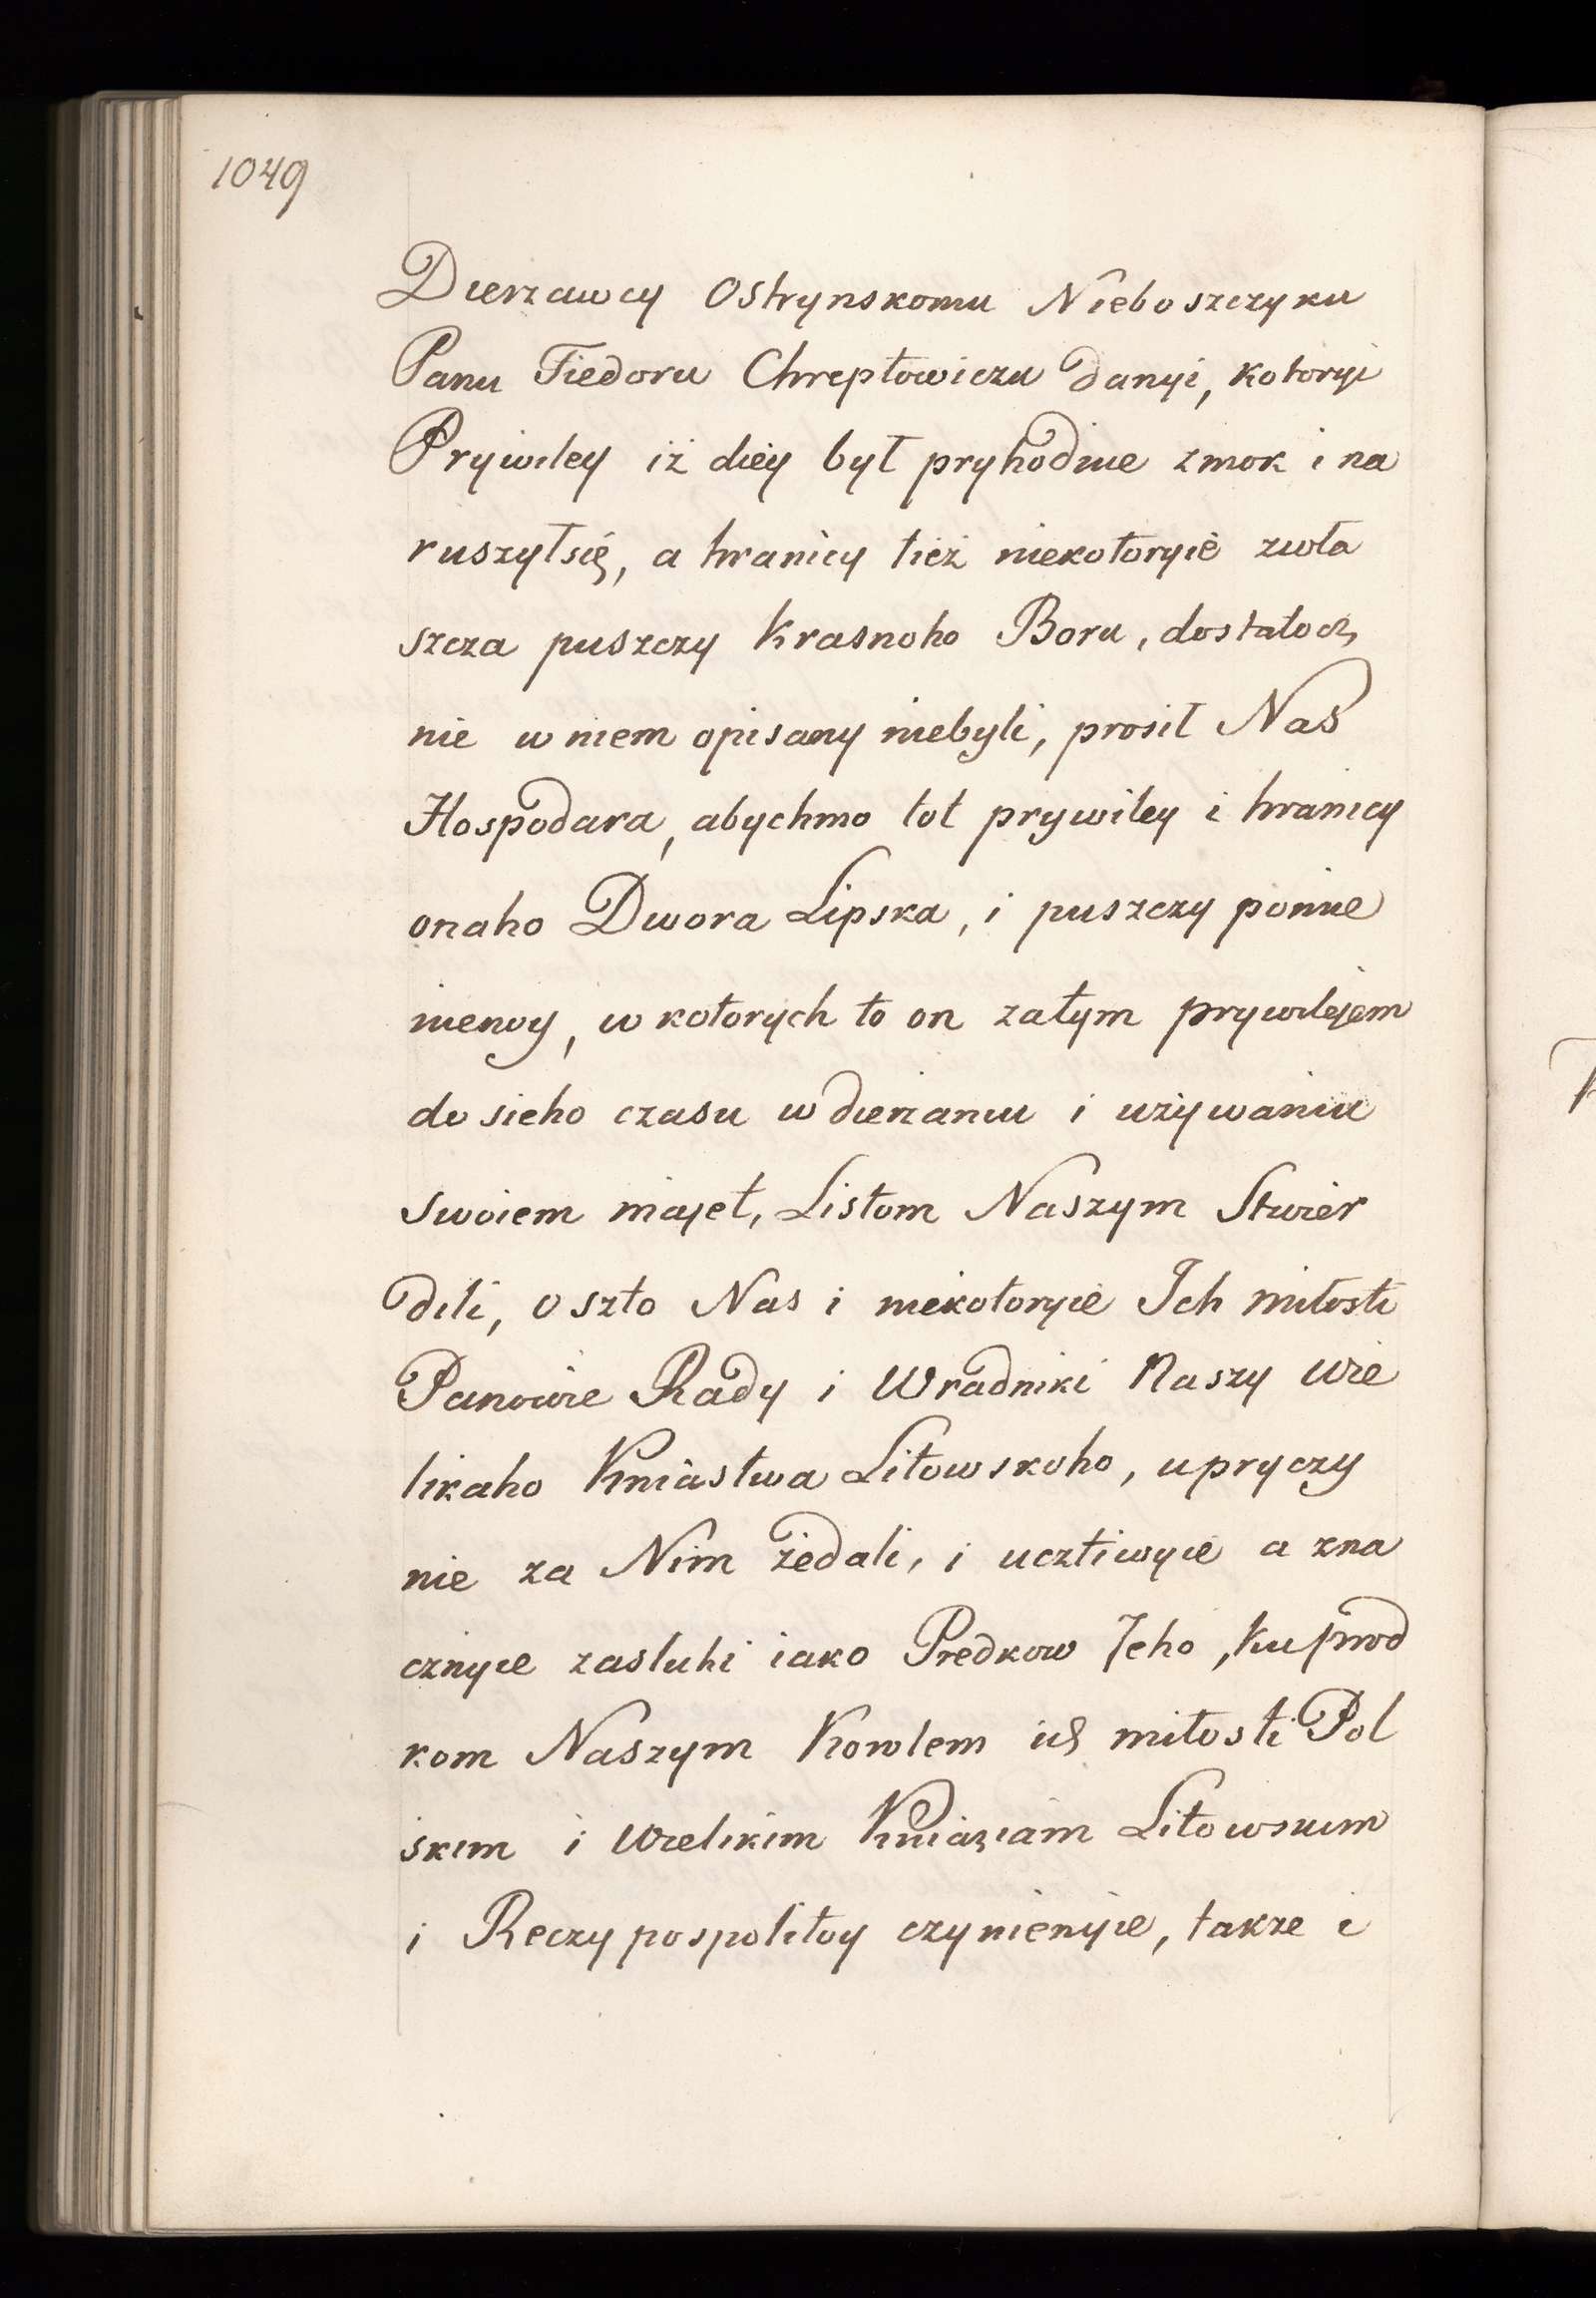 1049
Dierzawcy Ostrynskomu Nieboszczyku
Panu Fiedoru Chreptowiczu danyi, kotoryi
Prywiley iż diey był pryhodnie zmok i na
ruszył się, a hranicy tież niekotoryie zwła
szcza puszczy Krasnoho Boru, dostatocz
nie w niem opisany niebyli, prosił Nas
Hospodara, abychmo tot prywiley i hranicy
onaho Dwora Lipska, i puszczy pomie
nienoy, w kotorych to on zatym prywilejem
do sieho czasu w dierzaniu i używaniu
swoiem majet, Listom Naszym Stwier
dili, o szto Nas i niekotoryie Ich miłosti
Panowie Rady i Wradniki Naszy Wie
likaho Kniastwa Litowskoho, u pryczy
nie za Nim żedali, i ucztiwyie a zna
cznyie zasluhi iako Predkow Jeho, ku pred
kom Naszym Korolem ich miłosti Pol
skim i Wielikim Kniaziam Litowskim
i Reczy pospolitoy czynienyie, takze i